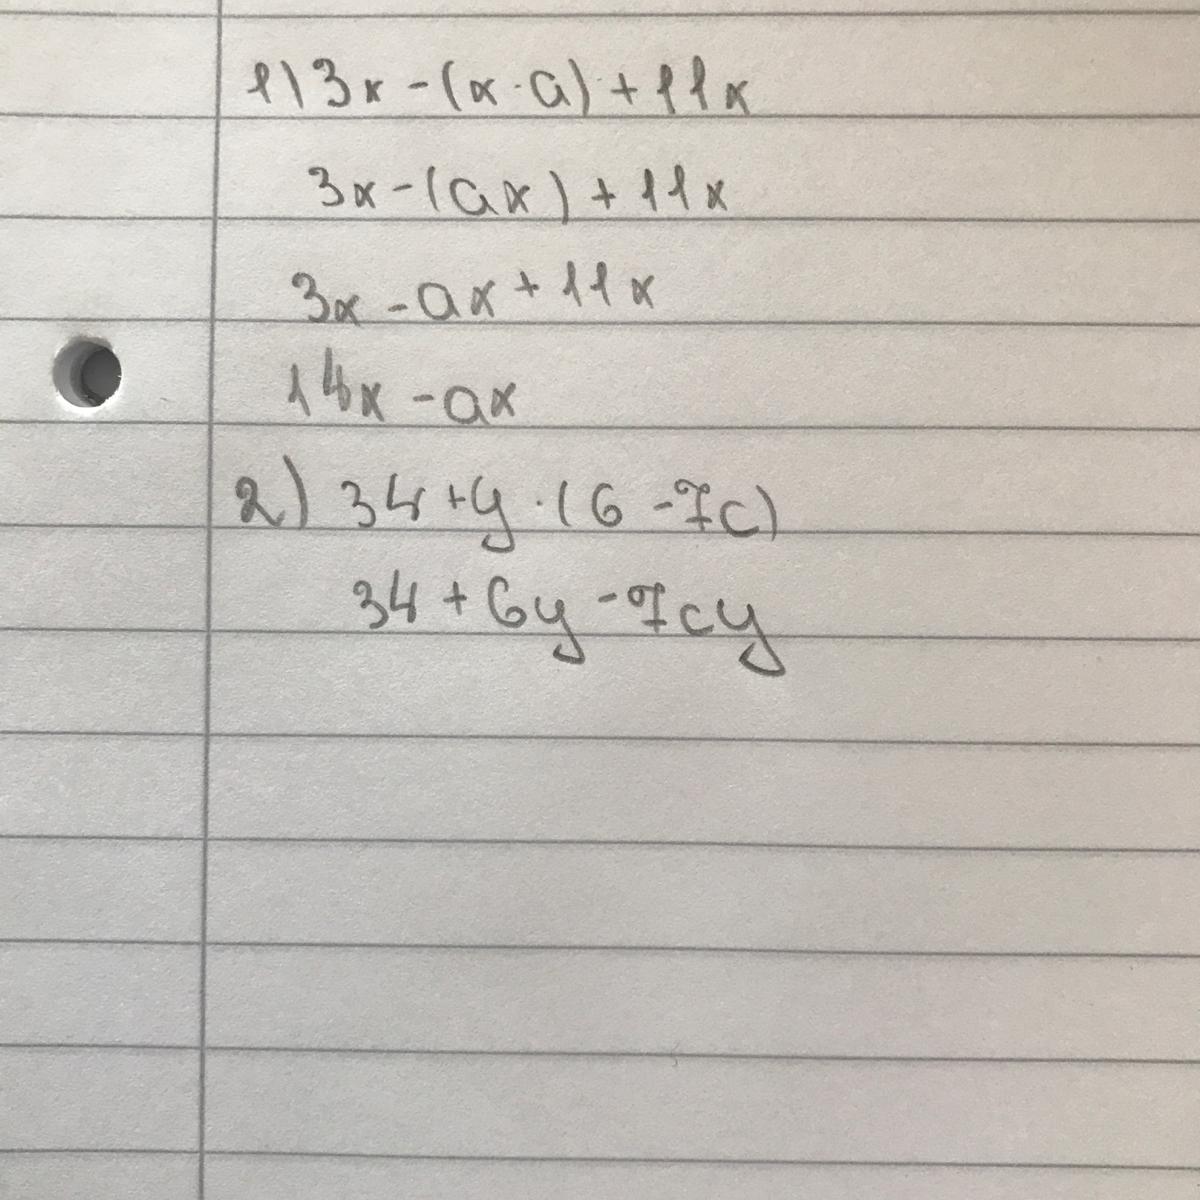 1) 3x - (x · a) + 11x
3x - (ax) + 11x
3x - ax + 11x
14x - ax
2) 34 + y · (6 - 7c)
34 + 6y - 7cy